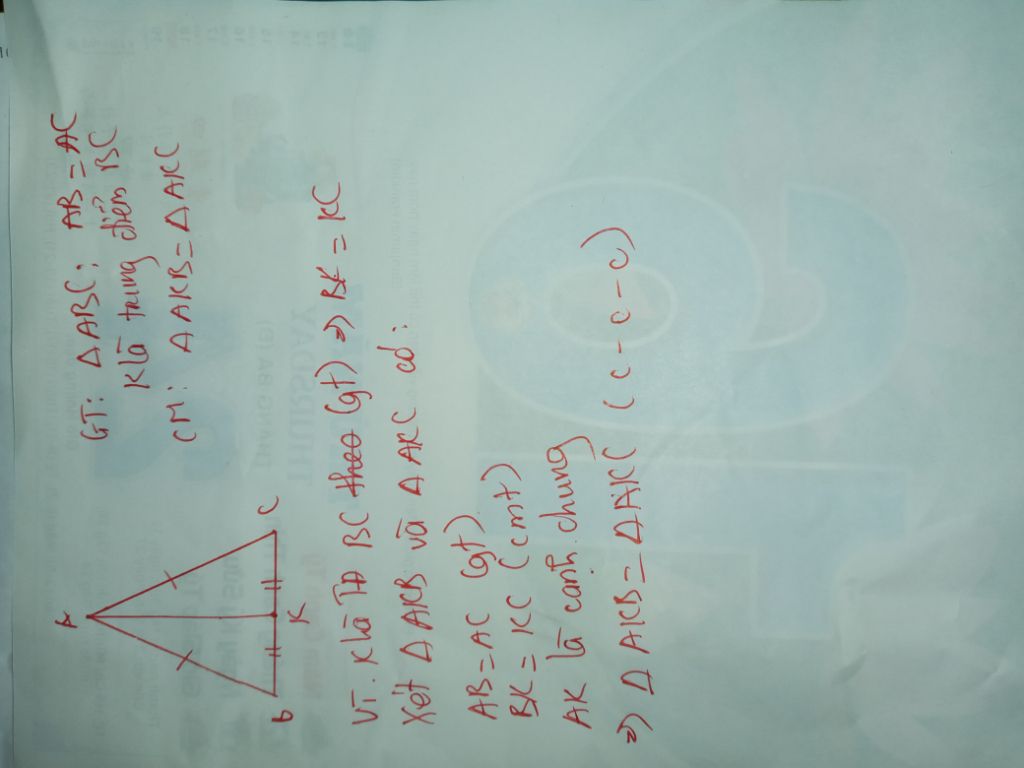 GT: ΔABC: AB = AC
K là trung điểm BC
CM: ΔAKB = ΔAKC
A
B
K
C
Vì K là TĐ BC theo (gt) => BK = KC
Xét ΔAKB và ΔAKC có:
AB = AC (gt)
BK = KC (cmt)
AK là cạnh chung
=> ΔAKB = ΔAKC (c - c - c)
THURSDAY